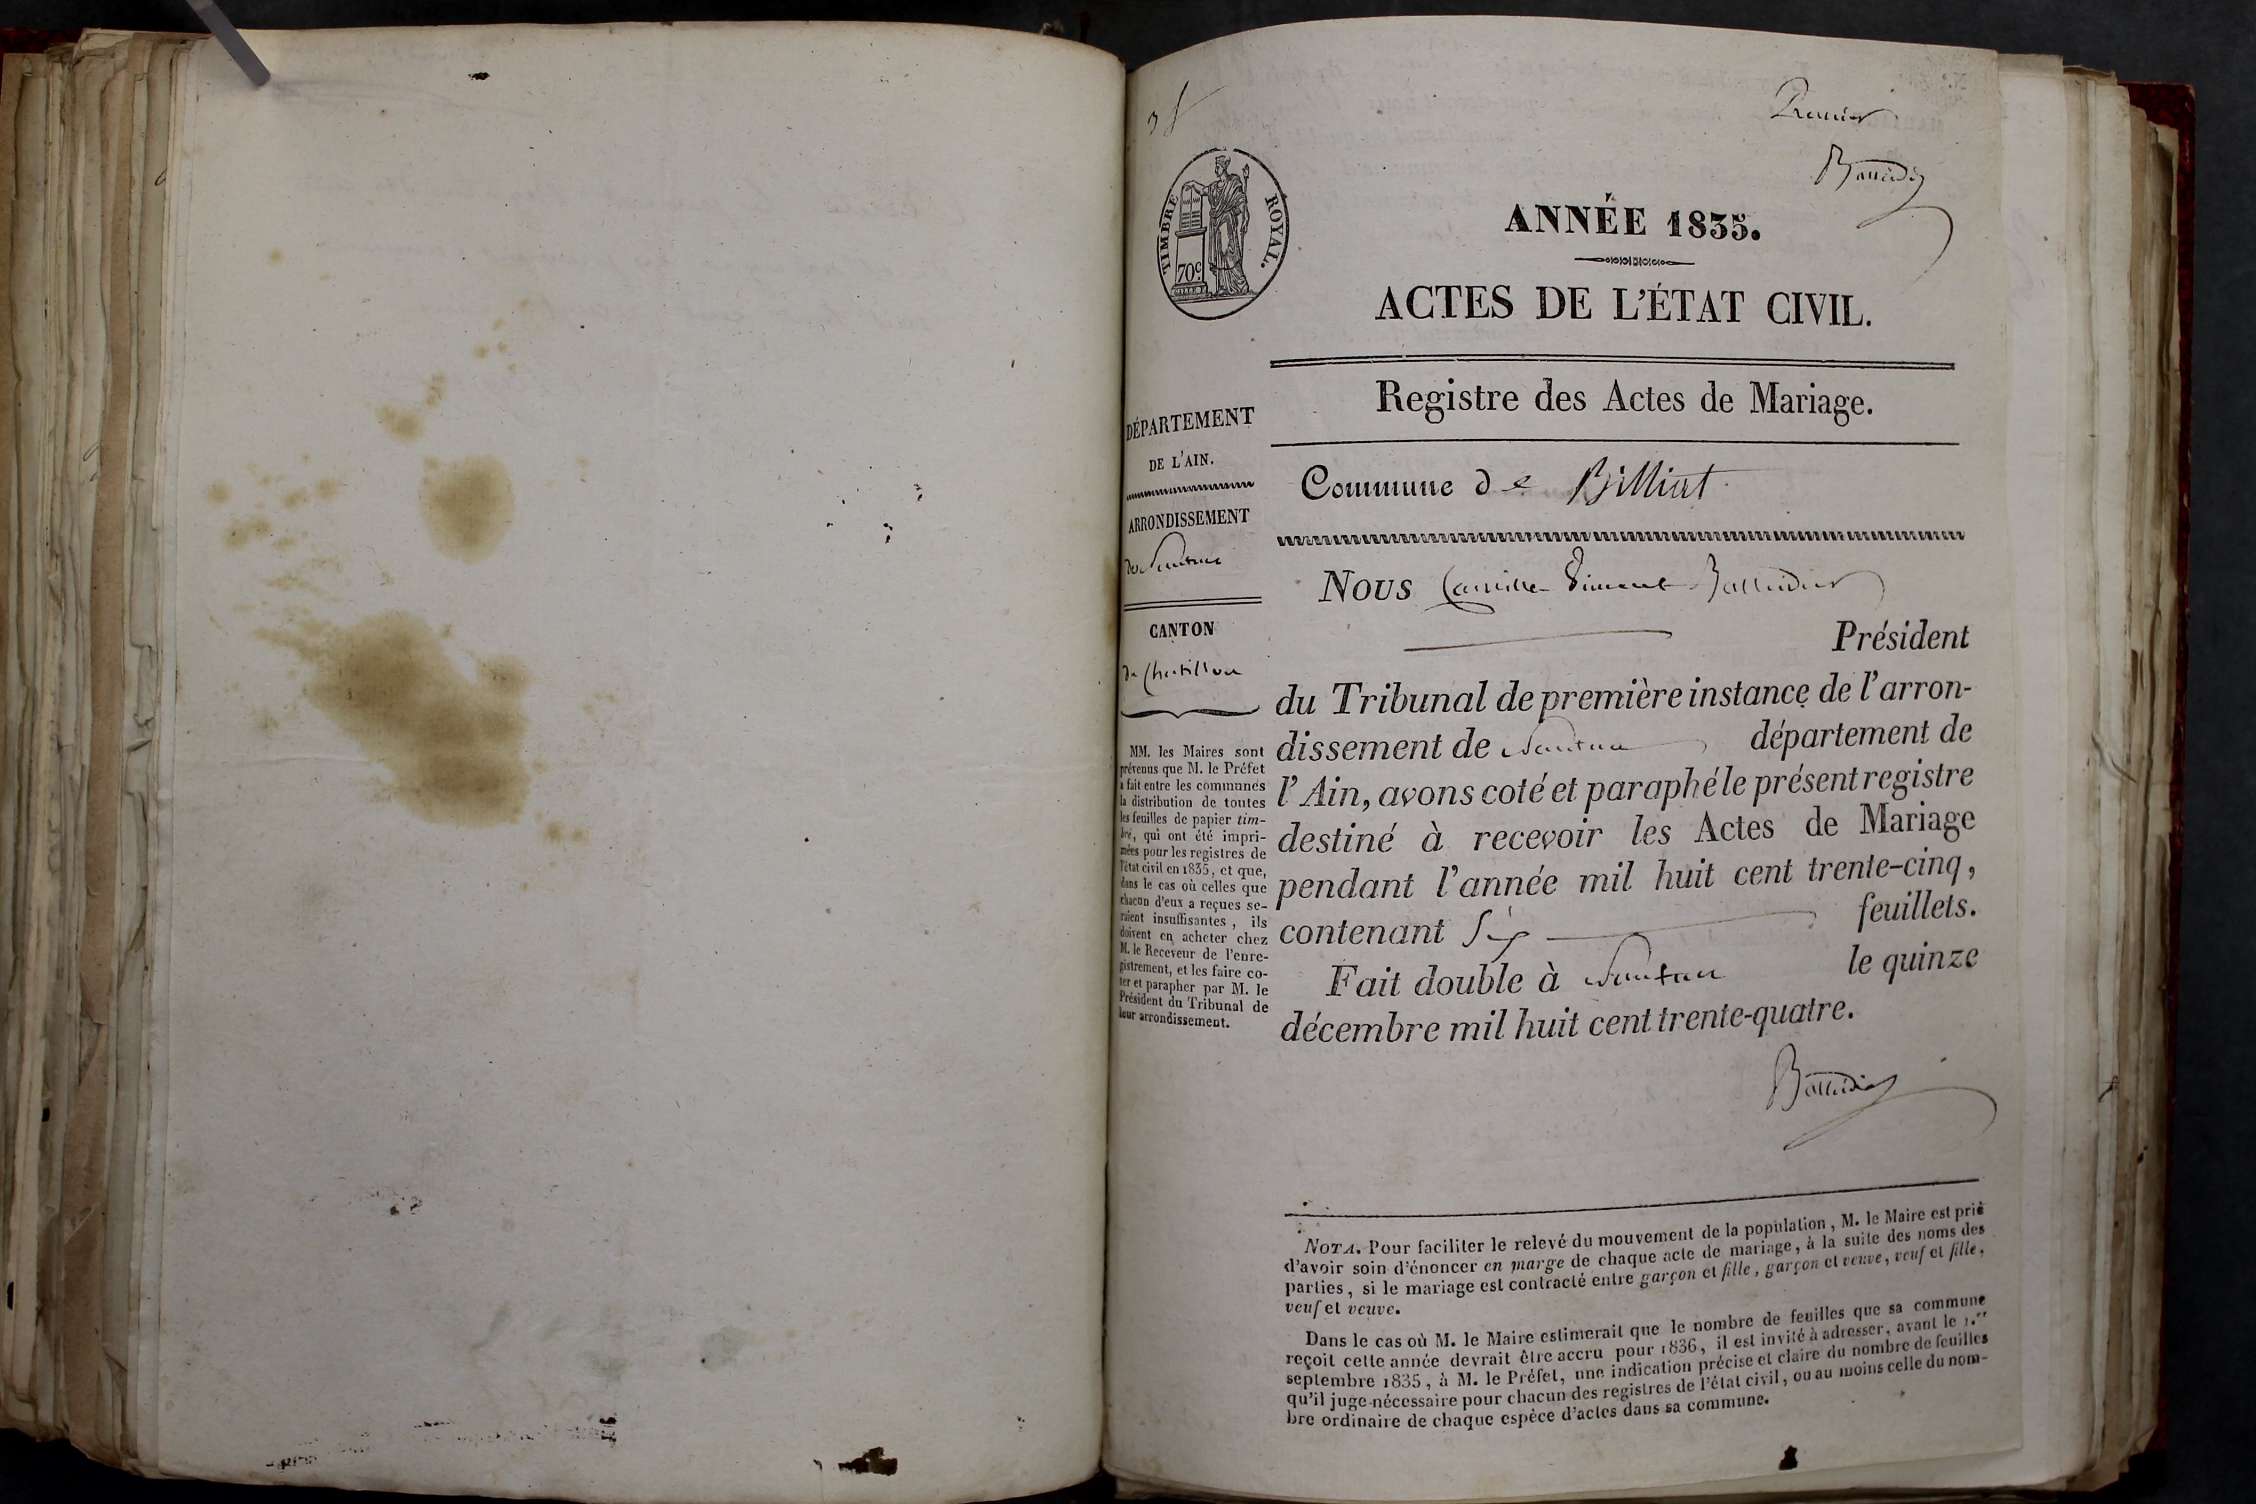 Premier
TIMBRE ROYAL.
70c
ANNÉE 1835.
ACTES DE L'ÉTAT CIVIL.
Registre des Actes de Mariage.
DÉPARTEMENT
DE L'AIN.
ARRONDISSEMENT
de Nantua
CANTON
de Chatillon
MM. les Maires sont
prévenus que M. le Préfet
a fait entre les communes
la distribution de toutes
les feuilles de papier tim-
bré, qui ont été impri-
mées pour les registres de
l'état civil en 1835, et que,
dans le cas où celles que
chacun d'eux a reçues se-
raient insuffisantes, ils
doivent en acheter chez
M. le Receveur de l'enre-
gistrement, et les faire co-
ter et parapher par M. le
Président du Tribunal de
leur arrondissement.
Commune de Billiat
Nous Camille
Président
du Tribunal de première instance de l'arron-
dissement de Nantua département de
l'Ain, avons coté et paraphé le présent registre
destiné à recevoir les Actes de Mariage
pendant l'année mil huit cent trente-cinq,
contenant Six feuillets.
Fait double à Nantua le quinze
décembre mil huit cent trente-quatre.
NOTA. Pour faciliter le relevé du mouvement de la population, M. le Maire est prié
d'avoir soin d'énoncer en marge de chaque acte de mariage, à la suite des noms des
parties, si le mariage est contracté entre garçon et fille, garçon et veuve, veuf et fille,
veuf et veuve.
Dans le cas où M. le Maire estimerait que le nombre de feuilles que sa commune
reçoit cette année devrait être accru pour 1836, il est invité à adresser, avant le 1.er
septembre 1835, à M. le Préfet, une indication précise et claire du nombre de feuilles
qu'il juge nécessaire pour chacun des registres de l'état civil, ou au moins celle du nom-
bre ordinaire de chaque espèce d'actes dans sa commune.